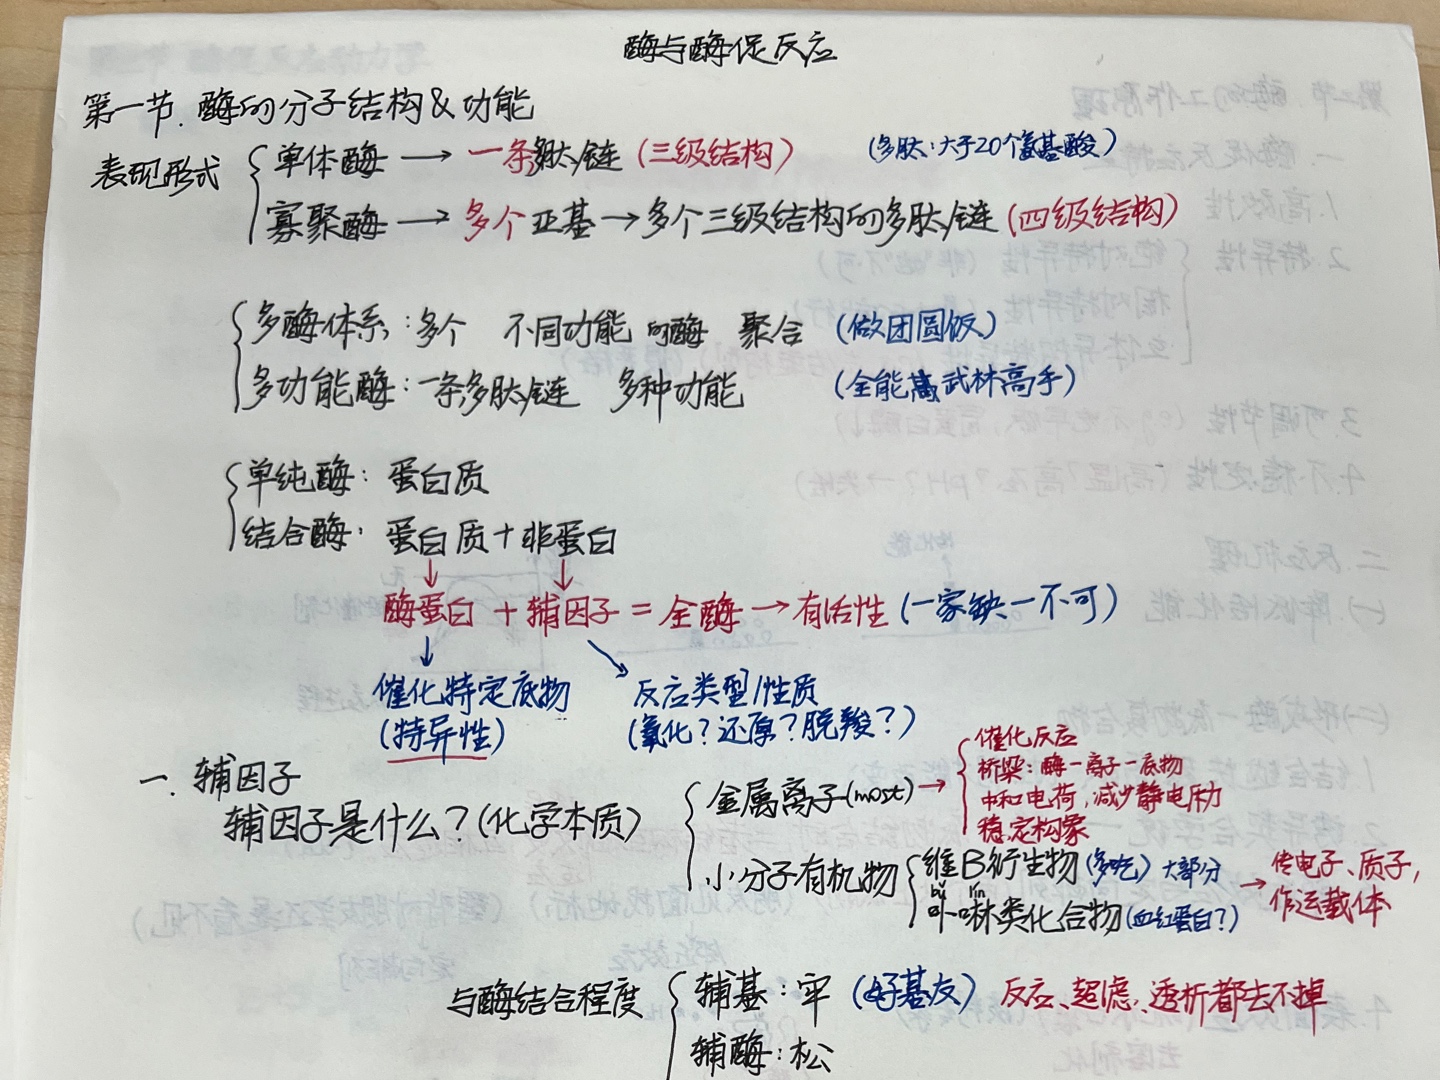 酶与酶促反应
第一节. 酶的分子结构&功能
表现形式
单体酶 → 一条多肽链 (三级结构) (多肽:大于20个氨基酸)
寡聚酶 → 多个亚基 → 多个三级结构的多肽链 (四级结构)
多酶体系:多个 不同功能 的酶 聚合 (做团圆饭)
多功能酶:一条多肽链 多种功能 (全能 武林高手)
单纯酶:蛋白质
结合酶:蛋白质+非蛋白
酶蛋白 + 辅因子 = 全酶 → 有活性 (一家缺一不可)
催化特定底物 反应类型/性质
(特异性) (氧化?还原?脱羧?)
一. 辅因子
辅因子是什么?(化学本质)
金属离子(most) →
催化反应
桥梁:酶-离子-底物
中和电荷,减少静电斥力
稳定构象
小分子有机物
维B衍生物 (多吃) 大部分
bǔ lín
卟啉类化合物 (血红蛋白?)
→ 传电子、质子,
作运载体
与酶结合程度
辅基:牢 (好基友) 反应、超滤、透析都去不掉
辅酶:松